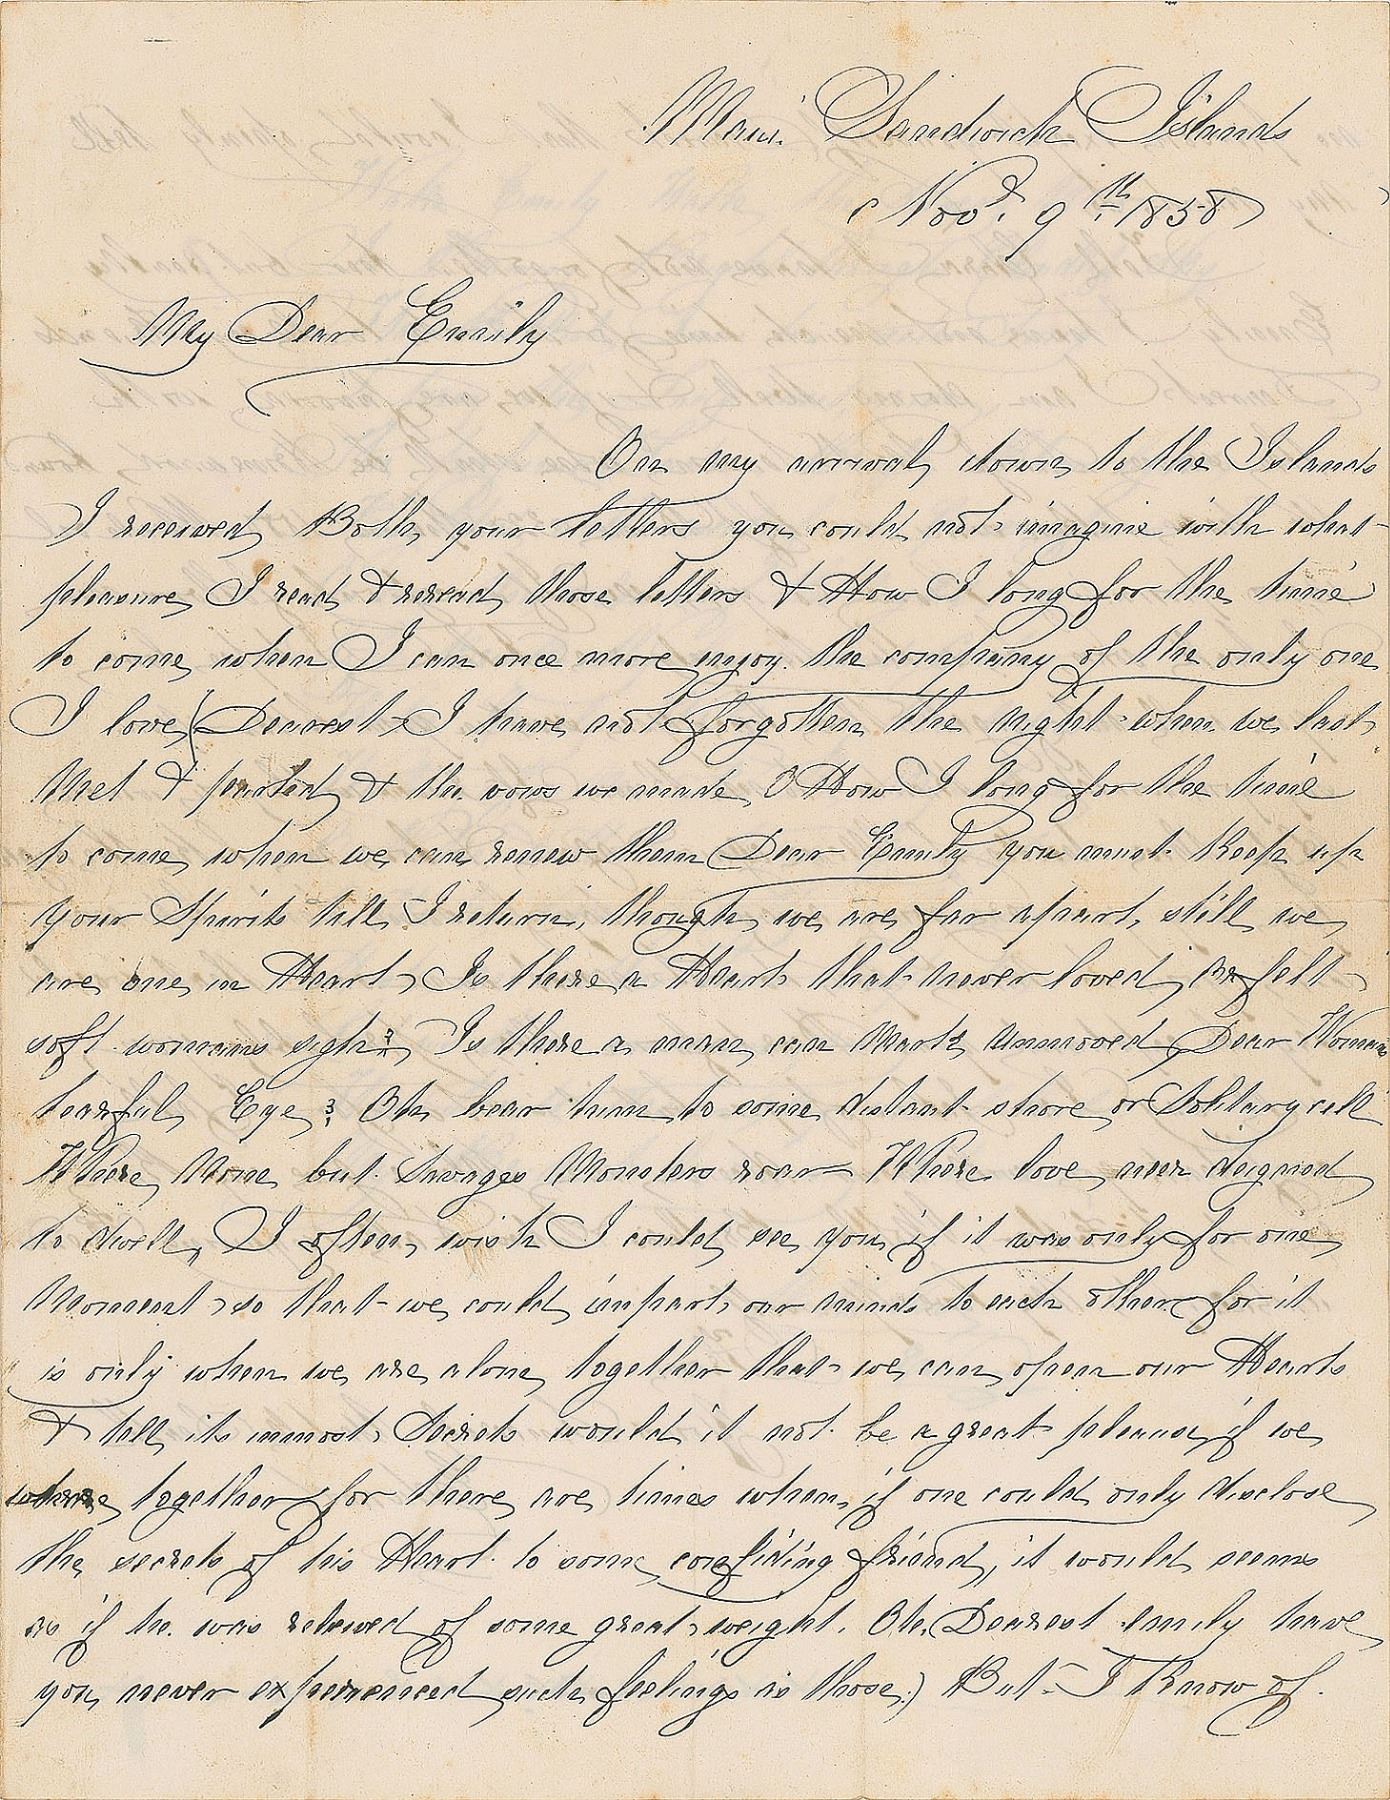 Maui. Sandwich Islands
Nov. 9th 1858
My Dear Emily
On my arrival down to the Islands
I received Both your letters you could not imagine with what
pleasure I read & reread those letters & How I long for the time
to come when I can once more enjoy the company of the only one
I love (Dearest I have not forgotten the night when we last
Met & parted & the vows we made O How I long for the time
to come when we can renew them Dear Emily you must Keep up
your Spirits till I return, though we are far apart, still we
are one in Heart, Is there a Heart that never loved, or felt
soft womans sigh? Is there a man can Mark Unmoved Dear Womans
tearful Eye? Oh bear him to some distant shore or Solitary cell
Where None but Savages Monsters roar Where love neer deigned
to dwell, I often wish I could see you if it was only for one
Moment so that we could impart our minds to each other for it
is only when we are alone together that we can open our Hearts
& tell its inmost Secrets would it not be a great pleasure if we
where together for there are times when if one could only disclose
the secrets of his Heart to some confiding friend, it would seem
as if he was relieved of some great weight. Oh. Dearest Emily have
you never experienced such feelings as those.) But I Know of.